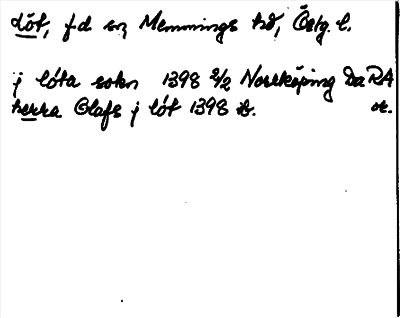 Löt, fd sn, Memmings hd, Östg. l.
j lóta sokn 1398 2/2 Norrköping Da RA
herra Olafs j lót 1398 ib. or.